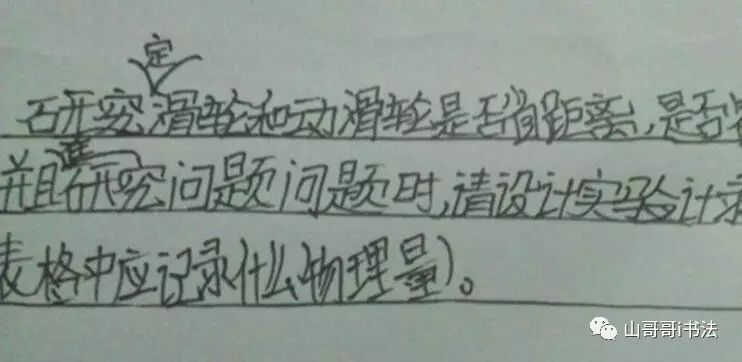 定
研究滑轮和动滑轮是否省距离,是否
并且研究问题问题时,请设计实验计录
表格中应记录什么物理量)。
山哥哥i书法